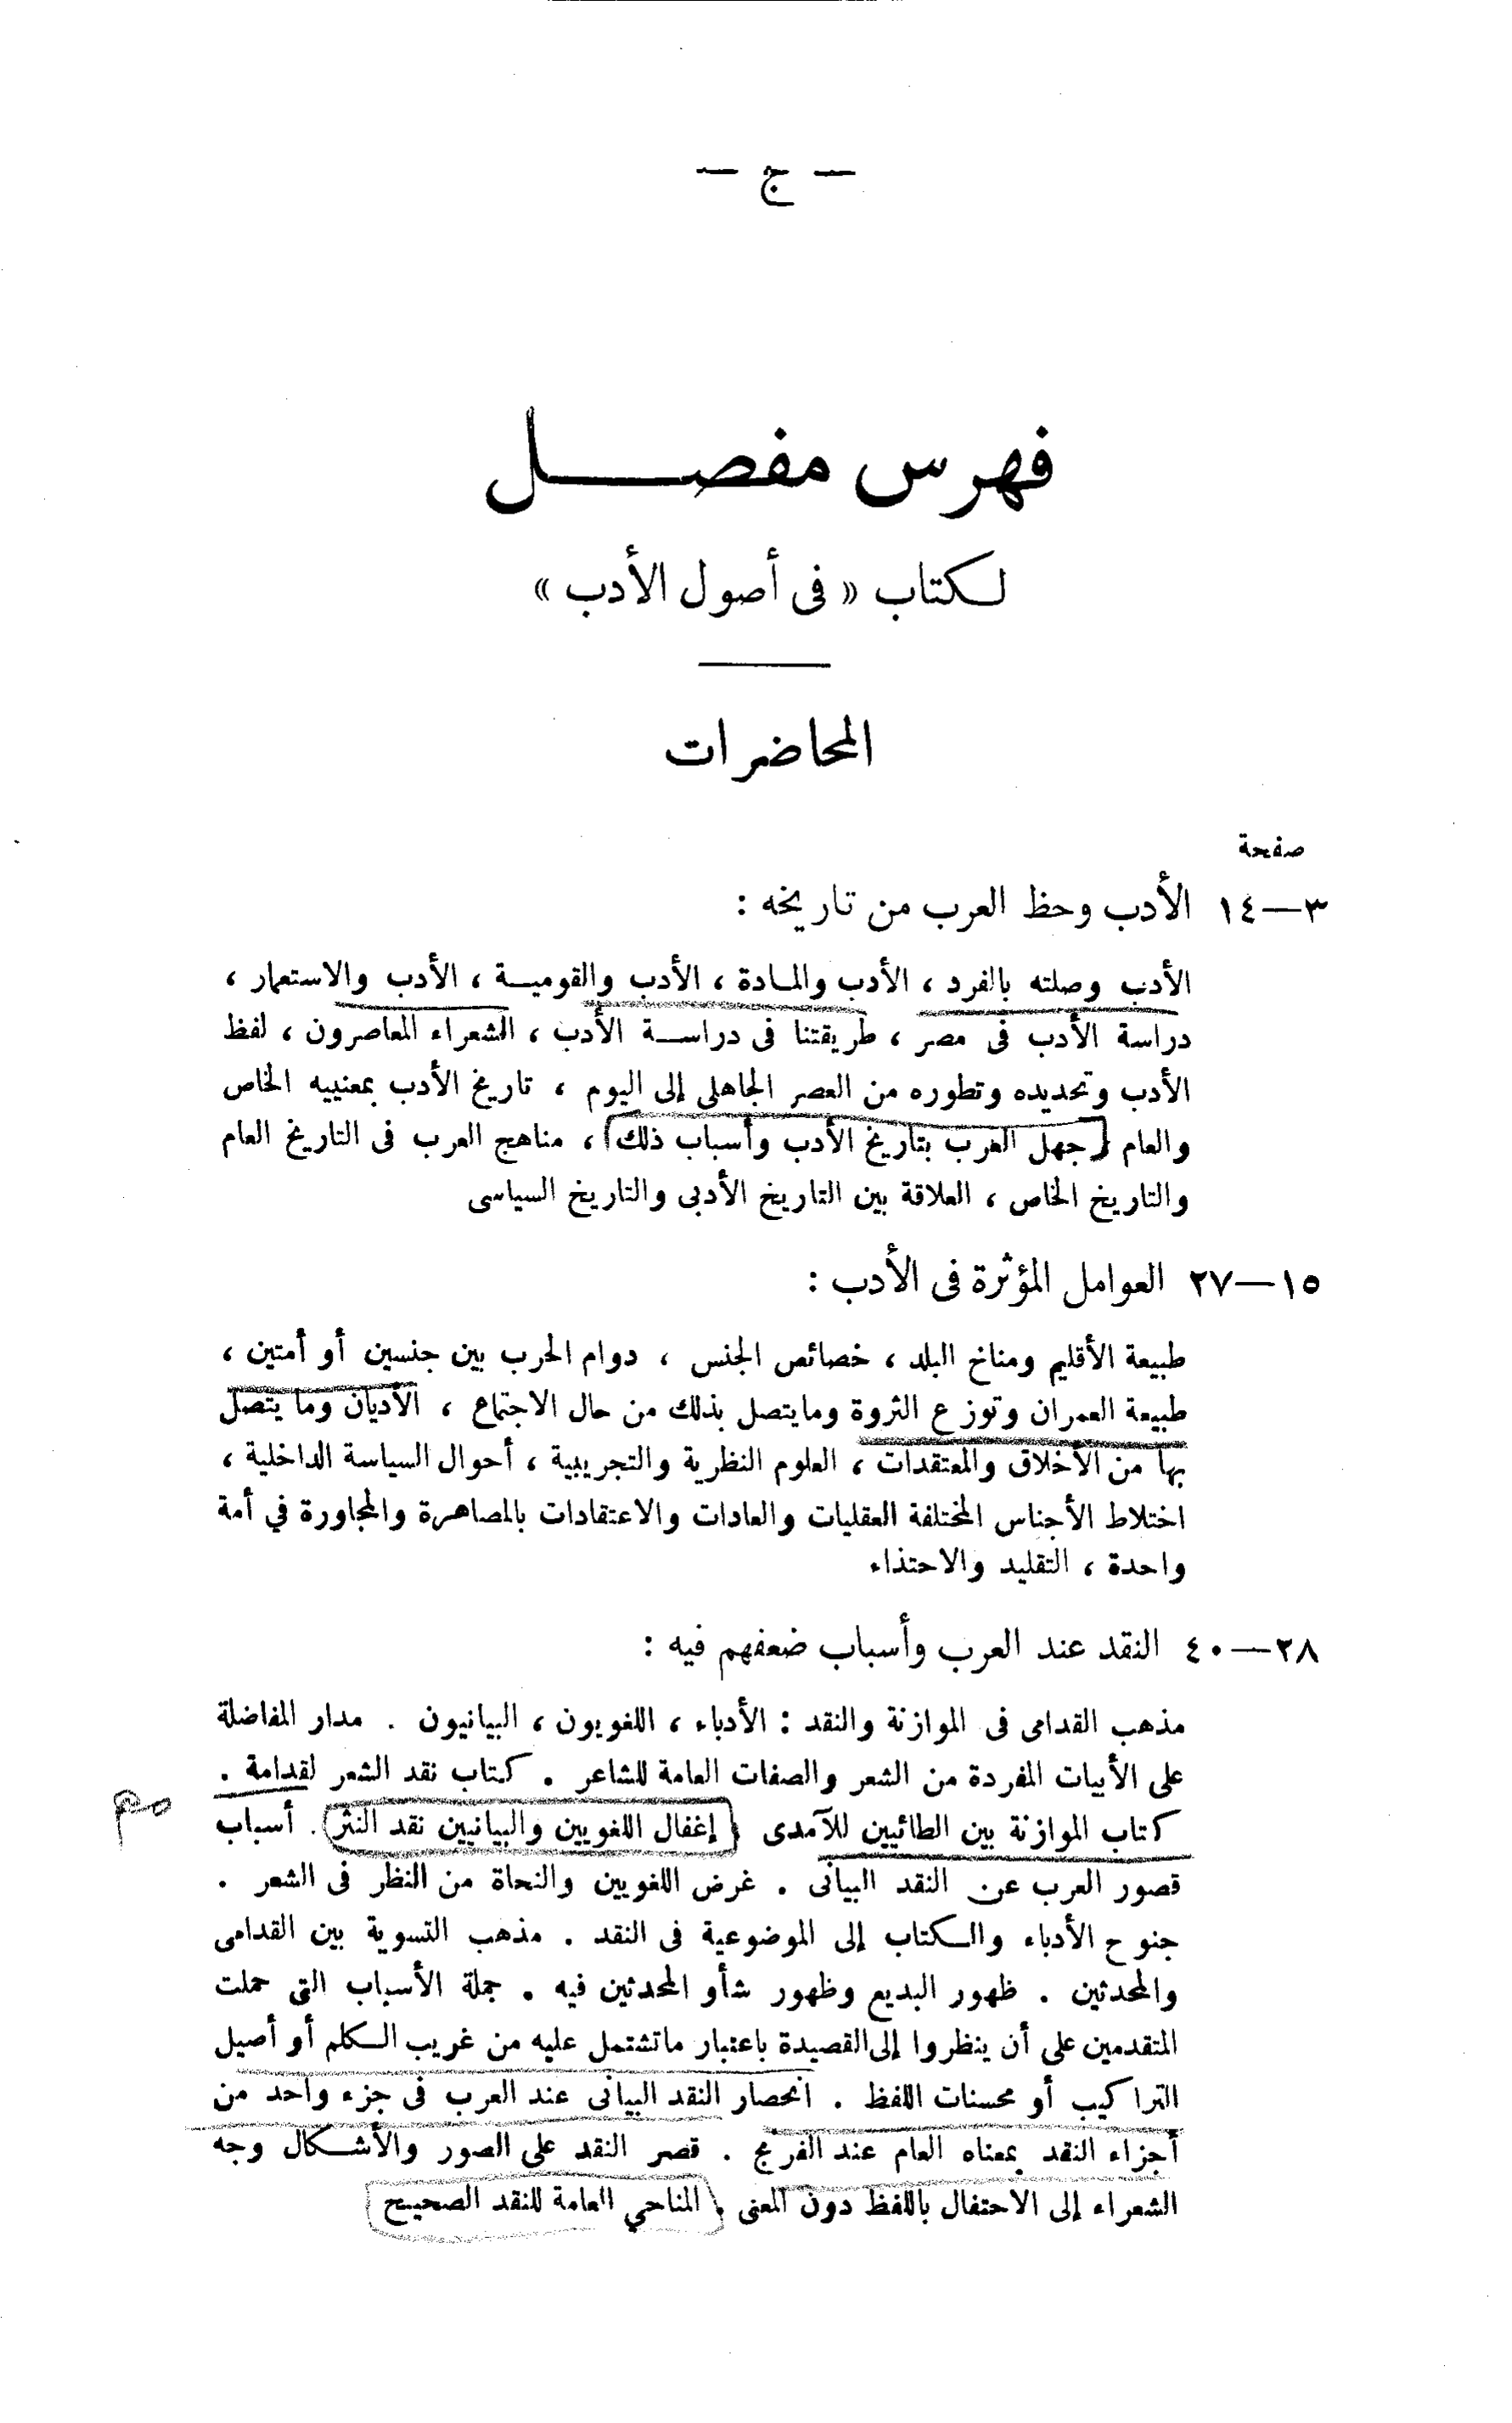 — ج —
فهرس مفصل
لكتاب « فى أصول الأدب »
المحاضرات
صفحة
٣—١٤ الأدب وحظ العرب من تاريخه :
الأدب وصلته بالفرد ، الأدب والمادة ، الأدب والقومية ، الأدب والاستعمار ،
دراسة الأدب فى مصر ، طريقتنا فى دراسة الأدب ، الشعراء المعاصرون ، لفظ
الأدب وتحديده وتطوره من العصر الجاهلى إلى اليوم ، تاريخ الأدب بمعنييه الخاص
والعام [جهل العرب بتاريخ الأدب وأسباب ذلك] ، مناهج العرب فى التاريخ العام
والتاريخ الخاص ، العلاقة بين التاريخ الأدبى والتاريخ السياسى
١٥—٢٧ العوامل المؤثرة فى الأدب :
طبيعة الأقليم ومناخ البلد ، خصائص الجنس ، دوام الحرب بين جنسين أو أمتين ،
طبيعة العمران وتوزع الثروة ومايتصل بذلك من حال الاجتماع ، الأديان وما يتصل
بها من الأخلاق والمعتقدات ، العلوم النظرية والتجريبية ، أحوال السياسة الداخلية ،
اختلاط الأجناس المختلفة العقليات والعادات والاعتقادات بالمصاهرة والمجاورة في أمة
واحدة ، التقليد والاحتذاء
٢٨—٤٠ النقد عند العرب وأسباب ضعفهم فيه :
مذهب القدامى فى الموازنة والنقد : الأدباء ، اللغويون ، البيانيون . مدار المفاضلة
على الأبيات المفردة من الشعر والصفات العامة للشاعر . كتاب نقد الشعر لقدامة .
كتاب الموازنة بين الطائيين للآمدى [إغفال اللغويين والبيانيين نقد النثر] . أسباب
قصور العرب عن النقد البيانى . غرض اللغويين والنحاة من النظر فى الشعر .
جنوح الأدباء والكتاب إلى الموضوعية فى النقد . مذهب التسوية بين القدامى
والمحدثين . ظهور البديع وظهور شأو المحدثين فيه . جملة الأسباب التى حملت
المتقدمين على أن ينظروا إلى القصيدة باعتبار ماتشتمل عليه من غريب الكلم أو أصيل
التراكيب أو محسنات اللفظ . انحصار النقد البيانى عند العرب فى جزء واحد من
أجزاء النقد بمعناه العام عند الفرنج . قصر النقد على الصور والأشكال وجه
الشعراء إلى الاحتفال باللفظ دون المعنى . [المناحي العامة للنقد الصحيح]